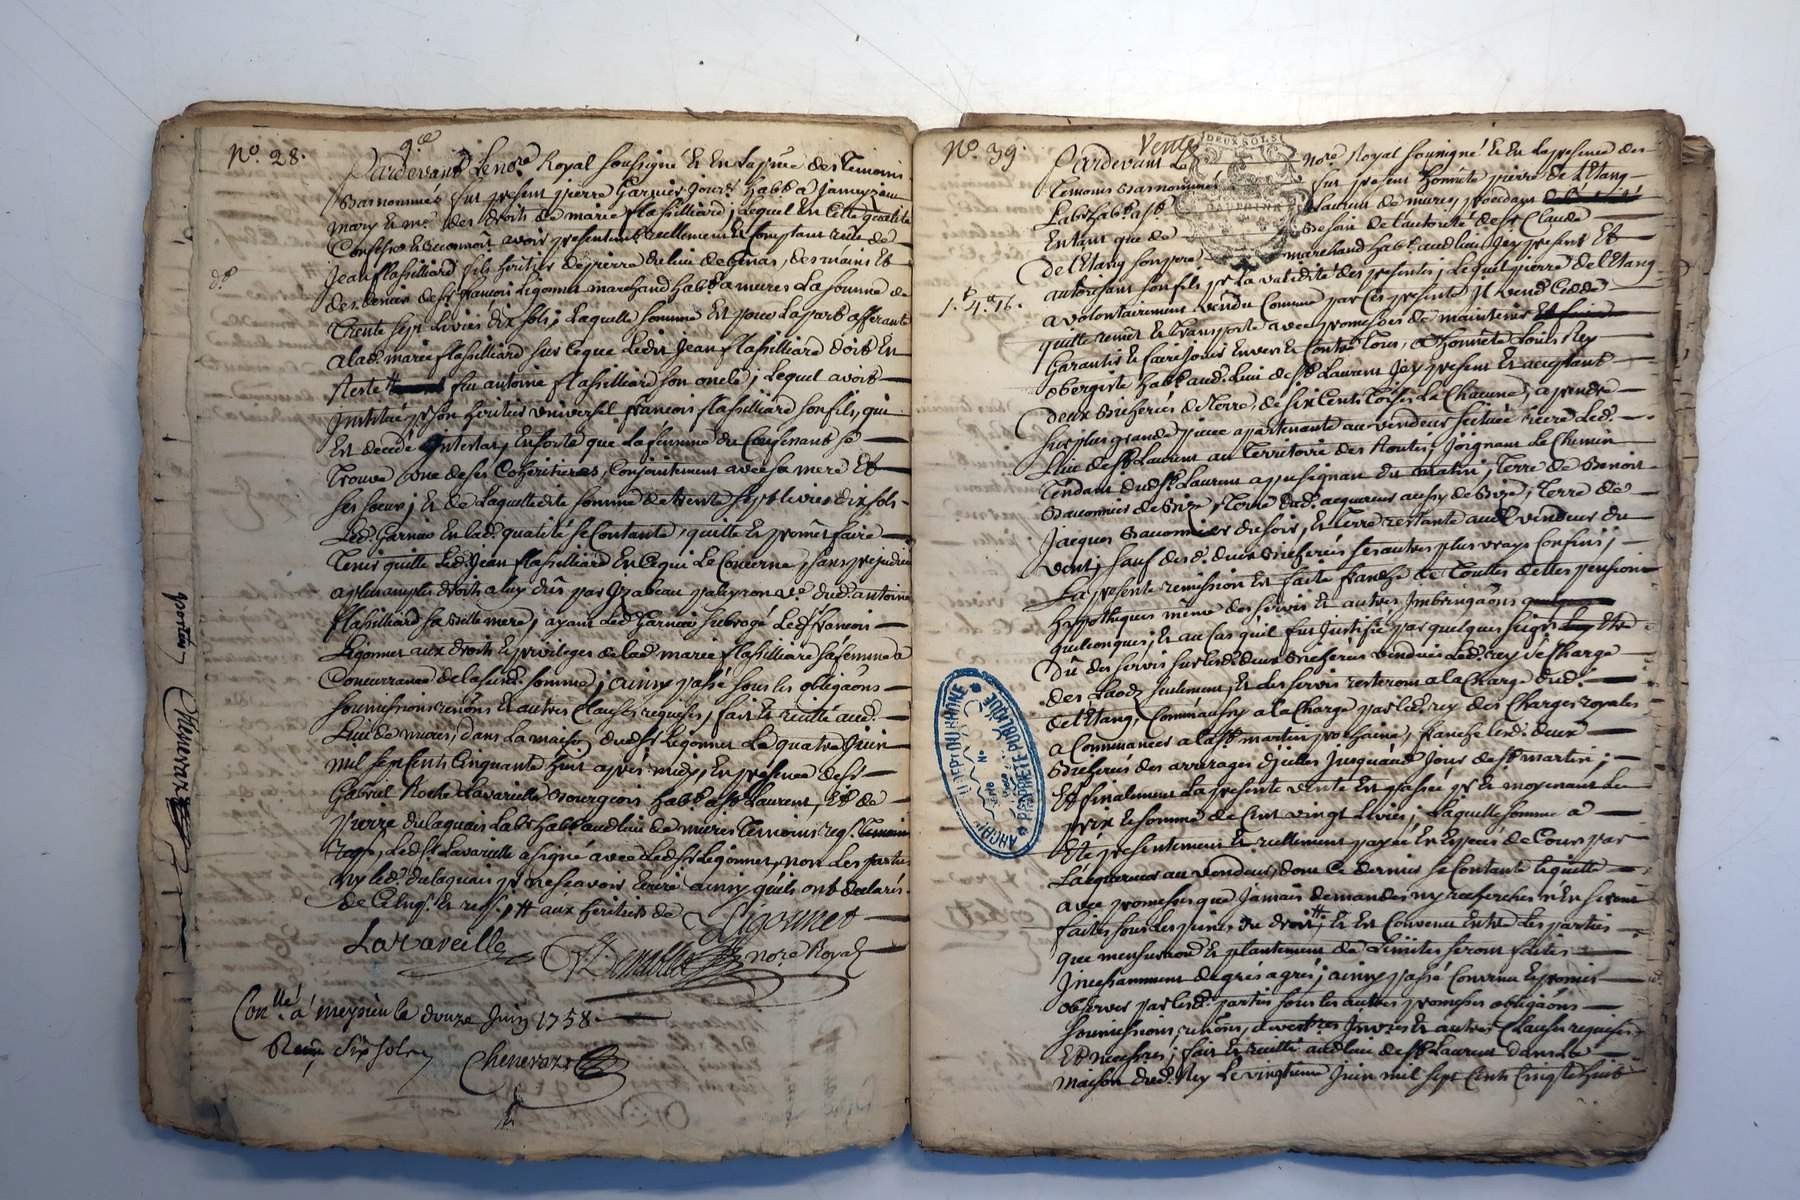 N.o 28.
q.ce
Pardevant Le no.re Royal soussigné Et En La p.nce des Temoins
Basnommés fut present pierre Garnier jour.r habt à Jameyzieu
mary Et m.e des droits de marie flassilliard, Lequel En Cette qualité
Confesse Et reconnoit avoir presentement reellement Et Comptant reçu de
Jean flassilliard fils heritier de pierre du lieu de Genas, des mains Et
d.o
des deniers de S.r françois Ligonnet marchand hab.t a mures La somme de
Trente sept Livres dix sols, Laquelle somme Est pour La part afferante
a lad. marie flassilliard sur ce que Ledit Jean flassilliard doit En
Reste feu antoine flassilliard son oncle, Lequel avoit
Institué p.r son heritier universel francois flassilliard son fils, qui
Est decedé intestat, En sorte que La femme du Confessant se
Trouve une de ses Coheritieres, Conjointement avec sa mere Et
ses soeurs, Et de Laquelle dite somme de trente sept livres dix sols
Led. Garnier En lad. qualité se Contante, quitte Et promet faire
Tenir quitte Led. Jean flassilliard En ce qui Le Concerne, sans prejudice
a plus amples droits a luy dûs par Izabeau v.e dud. antoine
flassilliard sa belle mere, ayant Led. Garnier subrogé Led. S.r francois
Ligonnet aux droits Et privileges de lad. marie flassilliard sa femme a
Concurrance de la susd. somme, ainsy passé sous les obligaôns
soumissions renôns Et autres Clauses requises, fait Et recitté aud.
Lieu de mures, dans La maison dud. S.r Ligonnet Le quatre Juin
mil sept Cents Cinquante huit après midy, En présence de S.r
Gabriel Roche Lavareille Bourgeois hab.t a S.t Laurent, Et de
Pierre dulaquais Lab.r hab.t aud. lieu de mures Temoins req.s
Led. S.r Lavareille a signé avec Led. S.r Ligonnet, non Les parties
ny led. dulaquais p.r ne scavoir Ecrire ainsy qu'ils ont declaré
de Ce Enq.s Et req.s, # aux heritiers de
Ligonnet
Lavareille
no.re Royal
Con.llé à meyzieu le douze Juin 1758
Reçu Six sols
Chenevaz
Chenevaz
N.o 39.
Vente
DEUX SOLS
DAUPHINÉ
Pardevant Le no.re Royal soussigné Et En La presence des
Temoins Basnommés fut present honnête pierre de L'Etang
Lab.r hab.t a S.t Laurent de mures, procedant
En tant que de Besoin de l'autorité de S.r Claude
de L'Etang son pere marchand hab.t aud. lieu Icy present Et
autorisant son fils p.r La validité des presentes, Lequel pierre de L'Etang
a volontairement vendu Comme par Ces presentes Il vend Cedde
quitte remet Et transporte avec promesses de maintenir
Garantir Et faire jouir Envers Et Contre Tous, a honnête Louis Rey
obergiste hab.t aud. Lieu de S.t Laurent Icy present Et acceptant
deux Bicherées de Terre, de six Cents Toises La Chacune, a prendre
sur plus grande piece appartenante au vendeur scituée riere Led.
Lieu de S.t Laurent au Territoire des joignant Le Chemin
Tendant dud. S.t Laurent a du matin, Terre de Benoit
de Bize, Terre dud. acquereur aussy de Bize, Terre de
Jacques du soir, Et Terre restante aud. vendeur du
vent, sauf desd. deux Bicherées ses autres plus vrays Confins,
La presente remission Est faite franche de Touttes dettes pensions
hypotheques même des servis Et autres Imbrigaôns
quelconques, Et au cas qu'il fut justifié par quelques seig.rs Etre
Dû des servis sur lesd. deux Bicherées vendues Led. rey se Charge
des Laods seulement, Et Les servis resteront a la Charge dud.
de L'Etang, Comm'aussy a la Charge par led. rey des Charges royales
a Commancer a la S.t martin prochaine, franche lesd. deux
Bicherées des arrerages d'jcelles jusqu'aud. jour de S.t martin,
Et finalement La presente vente Est passée p.r Et moyenant Le
prix Et somme de Cent vingt Livres, Laquelle somme a
Eté presentement Et reellement payée En Especes de Cours par
L'acquereur au vendeur, dont Ce dernier se Contante Et quitte
avec promesse que Jamais demandes ny recherches n'En seront
faites sous Les peines de droit, Et Est Convenu Entre Les parties
que mensuraôn Et plantement de Limites seront faites
Incessamment de gré a gré, ainsy passé Convenu Et promis
observer par lesd. parties sous les autres promesses obligaôns
soumissions, renôns, Et autres Clauses requises
Et necess.res, fait Et recitté aud. lieu de S.t Laurent dans La
maison dud. Rey Le vingtieme Juin mil sept Cents Cinq.te huit
ARCHIV. DÉPT DU RHONE
PROPRIÉTÉ PUBLIQUE